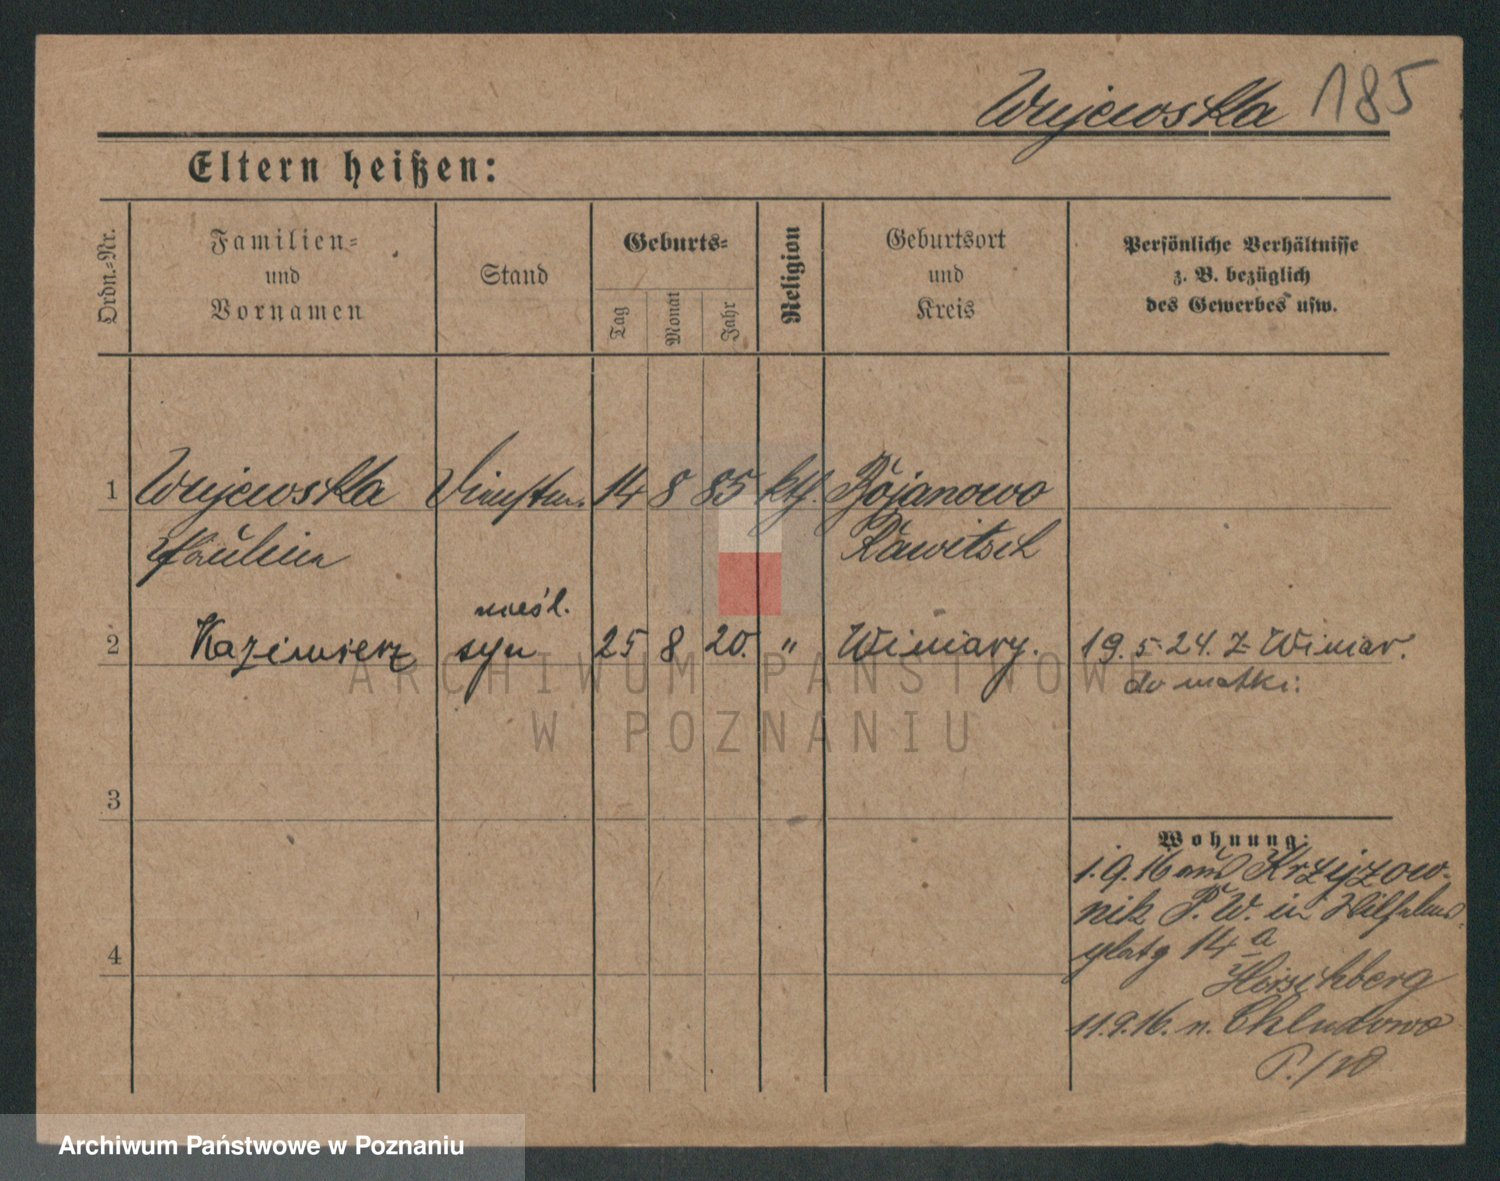 Wujewska 185
Eltern heißen:
Ordn.-Nr.
Familien-
und
Vornamen
Stand
Geburts-
Tag
Monat
Jahr
Religion
Geburtsort
und
Kreis
Persönliche Verhältnisse
z. B. bezüglich
des Gewerbes usw.
1 Wujewska 14 8 85 kth. Bojanowo
Paulina Rawitsch
nieśl.
2 Kazimierz syn 25 8 20. " Winiary. 19.5.24. z Winiar.
do matki.
3
Wohnung:
1.9.16 aus Krzyzow-
nik P. W. in Wilhelms
platz 14a
4
Hirschberg
11.9.16. n. Chludowo
P./W
ARCHIWUM PAŃSTWOWE
W POZNANIU
Archiwum Państwowe w Poznaniu